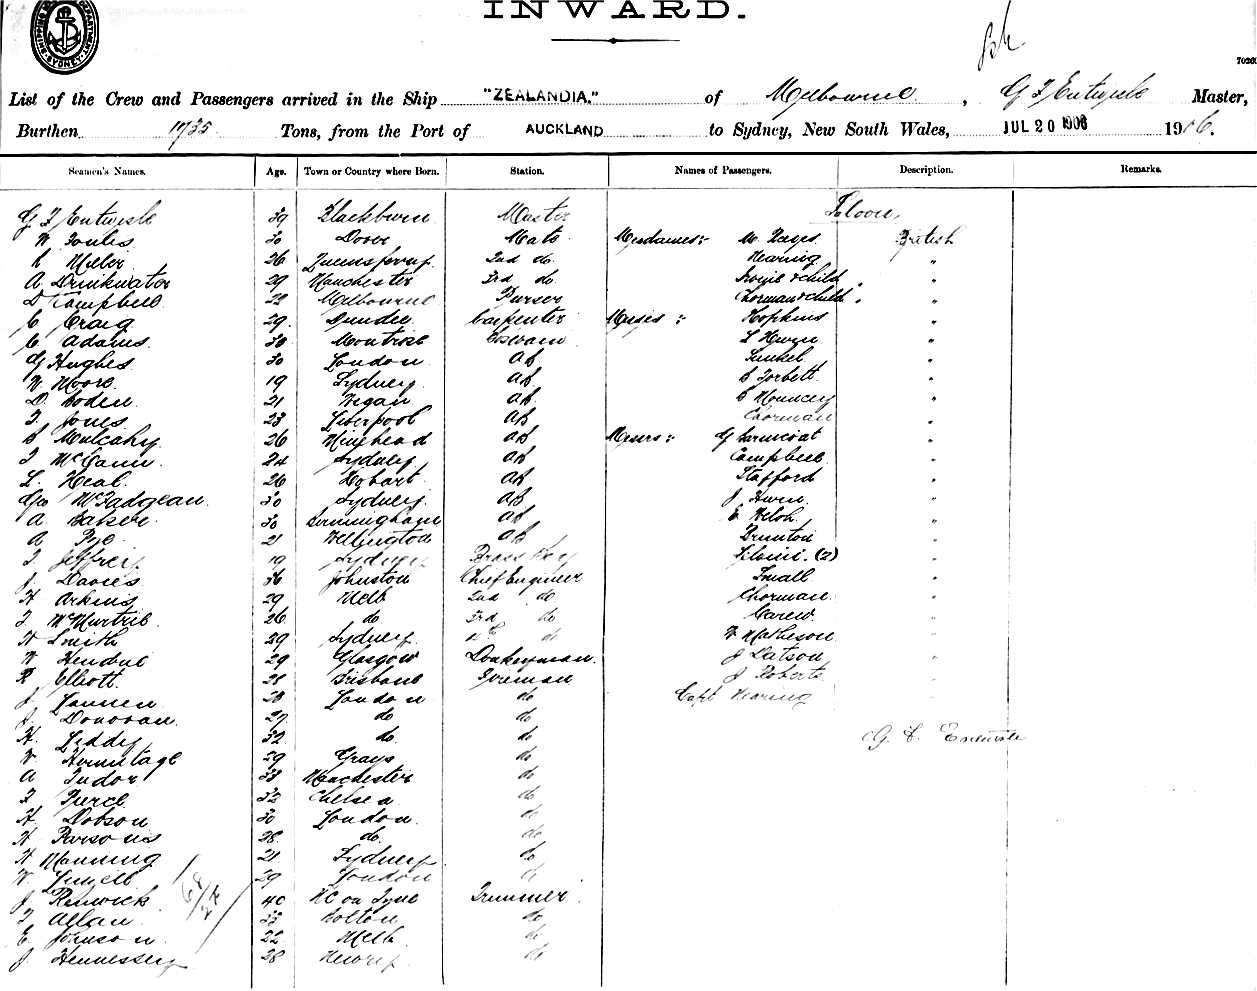 INWARD.
List of the Crew and Passengers arrived in the Ship "ZEALANDIA." of Melbourne, G F Entwisle Master,
Burthen 1735 Tons, from the Port of AUCKLAND to Sydney, New South Wales, JUL 20 1906 1906.
Seamen's Names. Age. Town or Country where Born. Station. Names of Passengers. Description. Remarks.
Saloon
G F Entwisle 39 Blackburn Master
W 30 Dover Mate Mesdames:- M. Hayes British
Miller 26 2nd do Nearing "
A Drinkwater 29 Manchester 3rd do & child "
D Campbell 29 Melbourne Purser Chorman & child "
C Craig 29 Dundee Carpenter Misses :- Hopkins "
C Adams 30 Montrose "
G Hughes 30 London AB "
W Moore 19 Sydney AB Torbett "
D. Boden 21 Wegan AB Mouncey "
T. Jones 23 Liverpool AB Chorman "
Mulcahy 26 Minehead AB Messrs :- G "
T McCann 24 Sydney AB Campbell "
L. Heal 26 Hobart AB Stafford "
Geo McFadgean 30 Sydney AB J. "
A 30 Birmingham AB E. "
A Pye 21 Wellington AB Brunton "
T Jeffrey 19 Sydney Brass Boy (2) "
J. Davies 36 Johnston Chief Engineer Small "
H Arkins 29 Melb 2nd do Chorman "
T McMurtrie 26 do 3rd do Carew "
H Smith 29 Sydney 4th do W Matheson "
W 29 Glasgow Donkeyman J Watson "
R Elliott 28 Brisbane Fireman J Roberts "
J. 28 London do Capt Nearing
J. Donovan 27 do do
H. Liddy 32 do do G F Entwisle
W Hermitage 29 Grays do
A Tudor 33 Manchester do
F Pierce 32 Chelsea do
H Dobson 30 London do
H Parsons 28 do do
H Manning 21 Sydney do
W 29 London do
J Renwick 40 NC on Tyne Trimmer
T Allan 33 Bolton do
E. Johnson 22 Melb do
J. Hennessery 28 Newry do